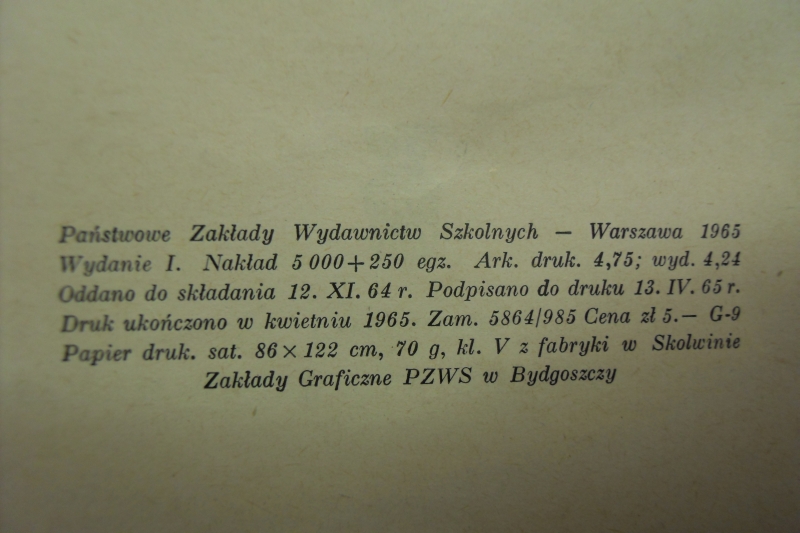 Państwowe Zakłady Wydawnictw Szkolnych — Warszawa 1965
Wydanie I. Nakład 5 000+250 egz. Ark. druk. 4,75; wyd. 4,24
Oddano do składania 12. XI. 64 r. Podpisano do druku 13. IV. 65 r.
Druk ukończono w kwietniu 1965. Zam. 5864/985 Cena zł 5.— G-9
Papier druk. sat. 86 × 122 cm, 70 g, kl. V z fabryki w Skolwinie
Zakłady Graficzne PZWS w Bydgoszczy